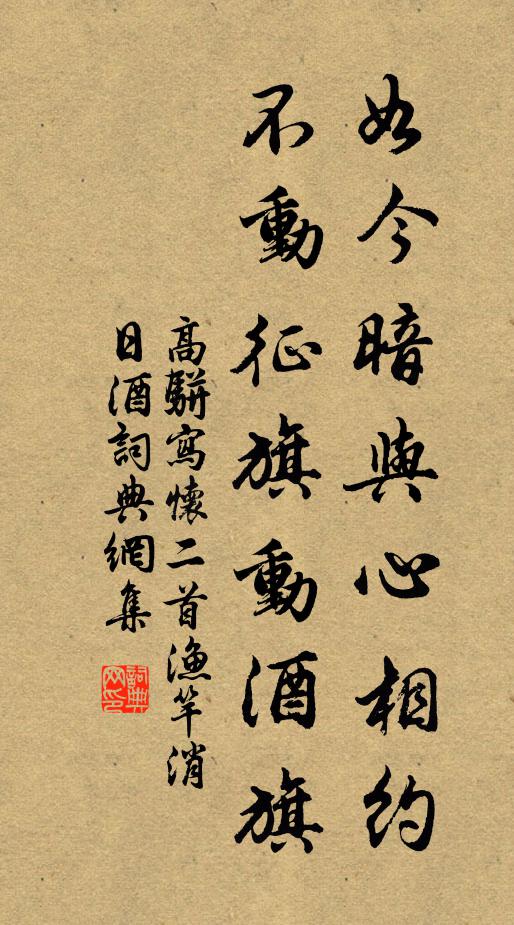 如今暗與心相約
不動征旗動酒旗
高駢寫懷二首漁竿消
日酒詞典網集
詞典
网印